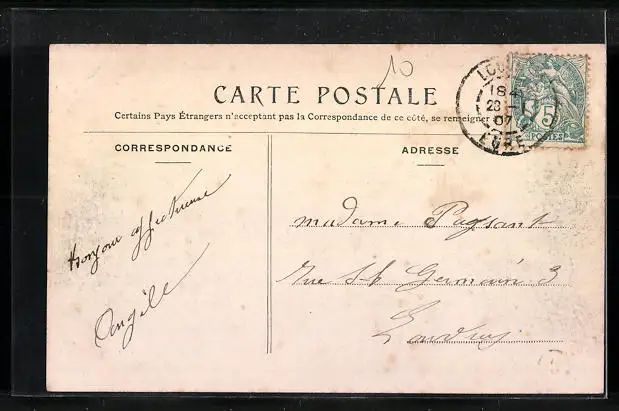 10
CARTE POSTALE
Certains Pays Étrangers n'acceptent pas la Correspondance de ce côté, se renseigner
CORRESPONDANCE
ADRESSE
LOU
18
28
07
EURE
5
POSTES
Bonjour affectueuse
Angèle
Madame Paysant
Rue St Germain 3
Louviers